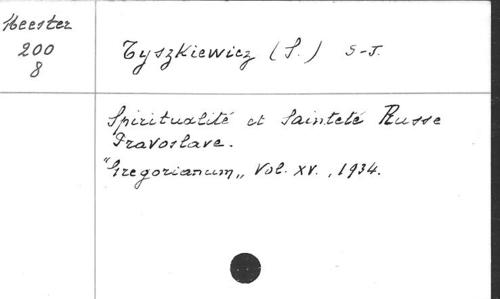 Meester
200
8
Tyszkiewicz (S.) S-J.
Spiritualité et Sainteté Russe
Pravoslave.
"Gregorianum„ Vol. XV., 1934.